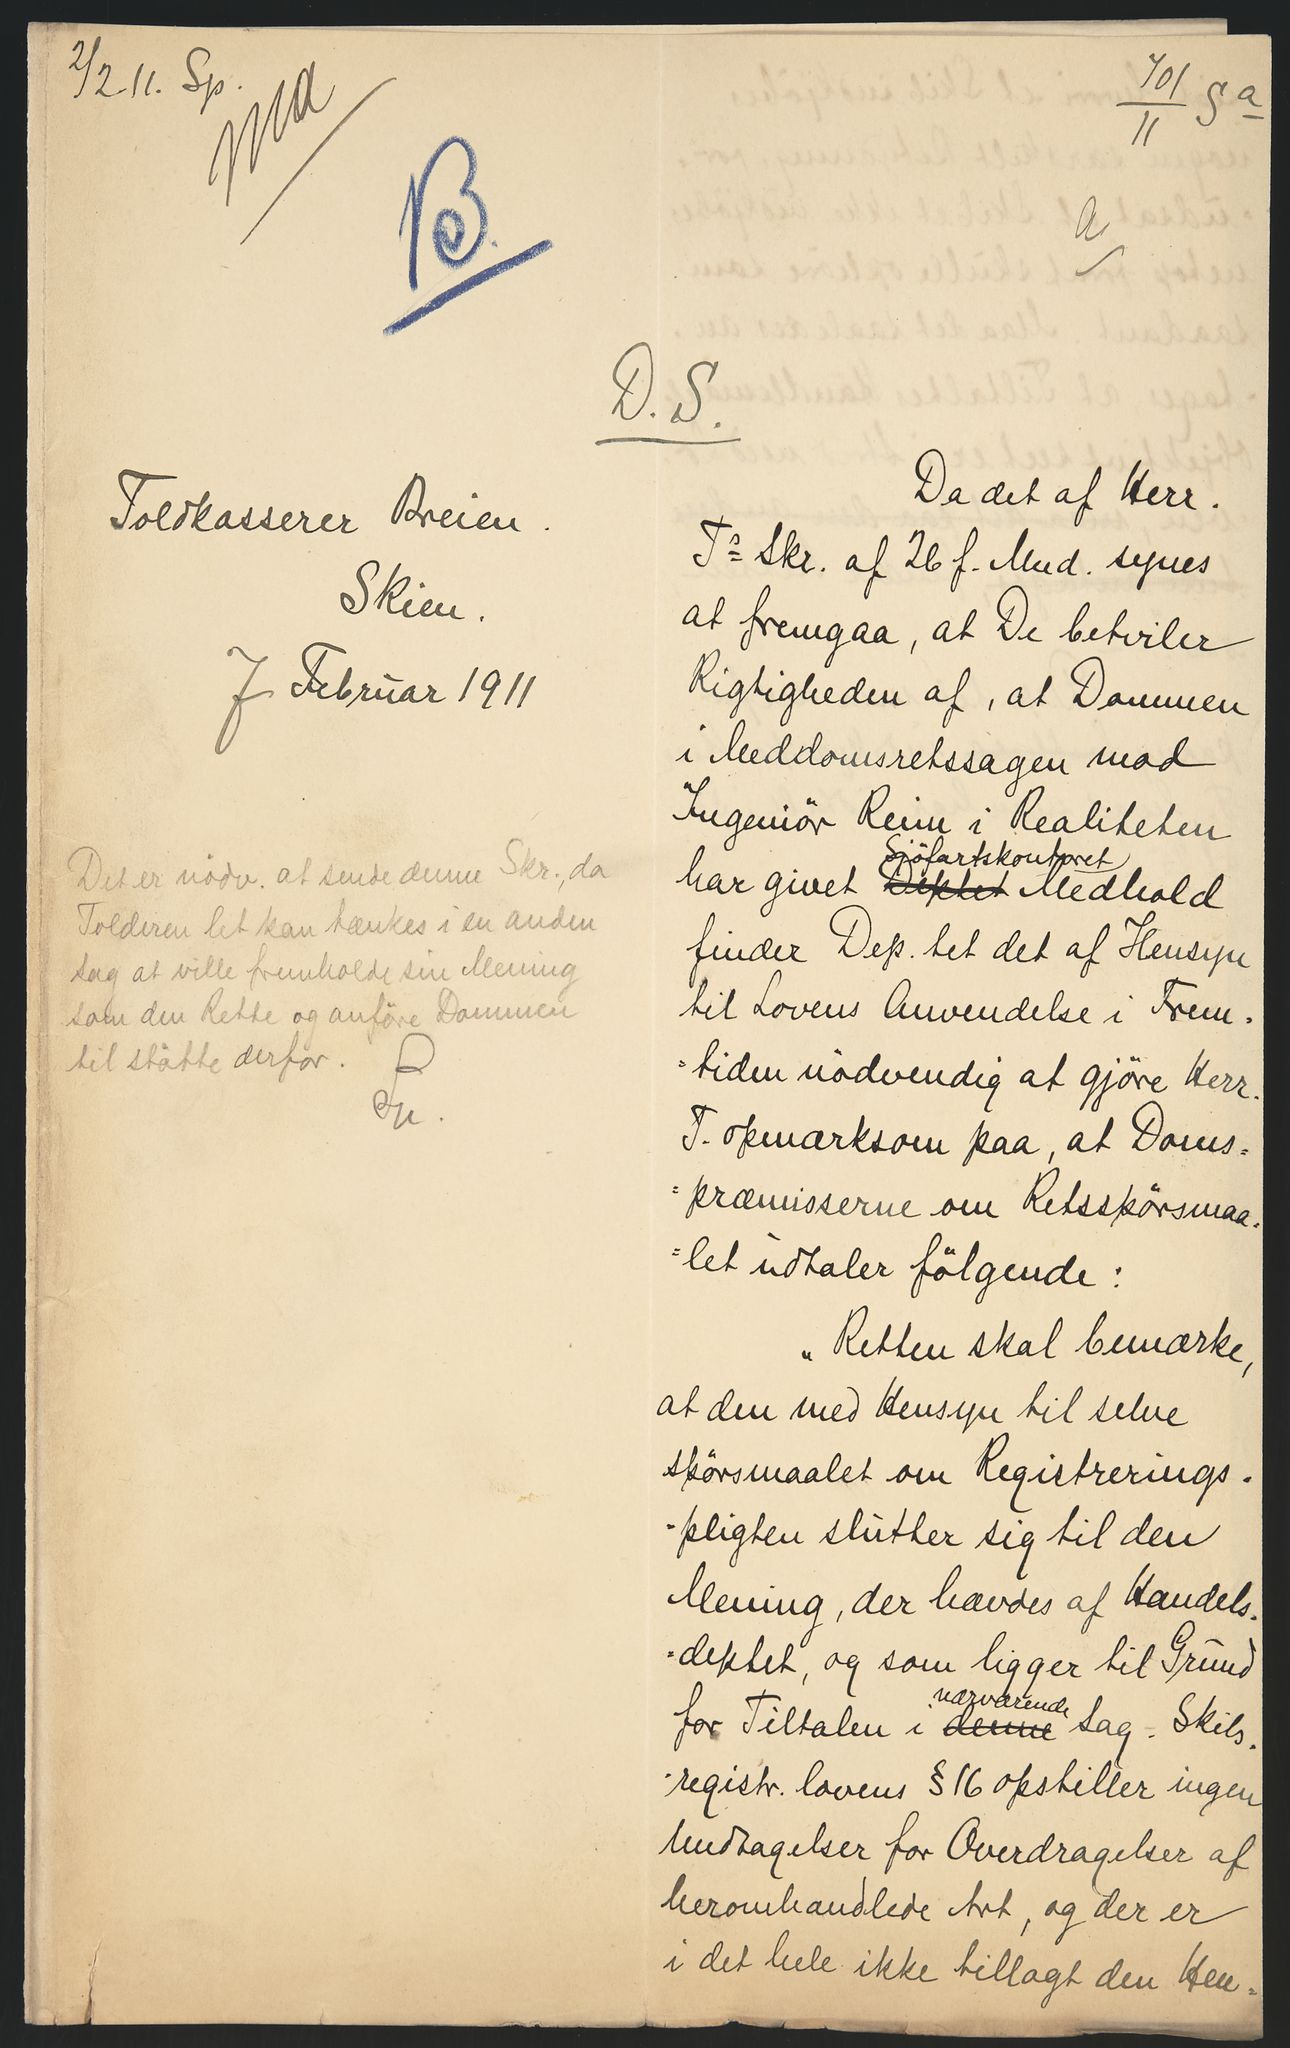 2/2 11. Sp.
701/11 S a
B.
a
D. S.
Toldkasserer Breien.
Skien.
7 Februar 1911
Det er nödv. at sende denne Skr., da
Tolderen let kan tænkes i en anden
Sag at ville fremholde sin Mening
som den Rette og anföre Dommen
til stötte derfor.
Sp.
Da det af Herr.
Ts Skr. af 26 f. Mnd. synes
at fremgaa, at De betviler
Rigtigheden af, at Dommen
i Meddomsretssagen mod
Ingeniör Reim i Realiteten
Sjöfartskontoret
har givet Deptet Medhold
finder Dep. tet det af Hensyn
til Lovens Anvendelse i Frem-
-tiden nödvendig at gjöre Herr.
T. opmærksom paa, at Doms=
=præmisserne om Retsspörsmaa=
=let udtaler fölgende:
„Retten skal bemærke,
at den med Hensyn til selve
spörsmaalet om Registrerings-
-pligten slutter sig til den
Mening, der hævdes af Handels-
=deptet, og som ligger til Grund
nærværende
for Tiltalen i denne Sag. Skibs-
-registr. lovens § 16 opstiller ingen
Undtagelser for Overdragelser af
heromhandlede Art, og der er
i det hele ikke tillagt den Hen=